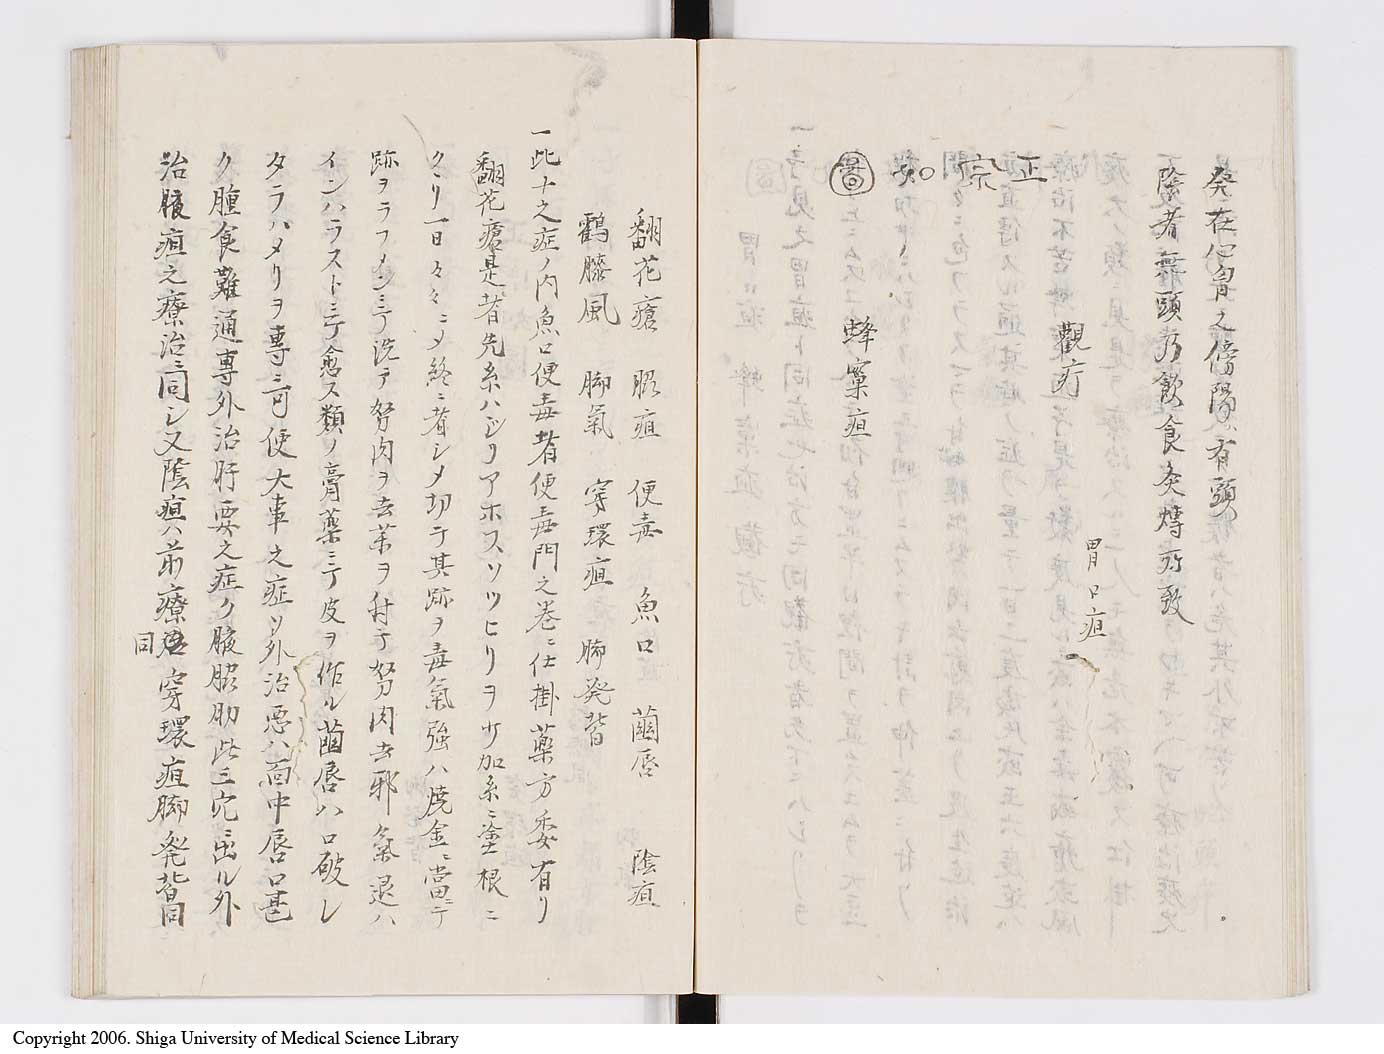 発在心胃之傍陽ハ有頭
陰者無頭乃飲食灸煿所致
胃口疽
觀疔
正宗ノ
圖
蜂窠疽
翻花瘡 脇疽 便毒 魚口 繭唇 陰疽
鶴膝風 脚氣 穿環疽 脚発背
一此十之症ノ内魚口便毒者便毒門之巻ニ仕掛薬方委有リ
翻花瘡是者先糸ハシリアホスソツヒリヲサ加糸ニ塗根ニ
クヽリ一日々々ニメ終ニ者シメ切テ其跡ヲ毒氣強ハ焼金ニ當ニテ
跡ヲラフメンニテ洗テ努肉ヲ去薬ヲ付テ努肉去邪氣退ハ
インハラストニテ愈ス類ノ膏薬ニテ皮ヲ作ル繭唇ハ口破レ
タラハメリヲ專ニ可便大事之症ツ外治悪ハ面中唇口甚
ク腫食難通專外治肝要之症ク腋脇肋此三穴ニ出ル外
治腋疽之療治ニ同シ又陰疽ハ前療ニ同穿環疽脚発背同